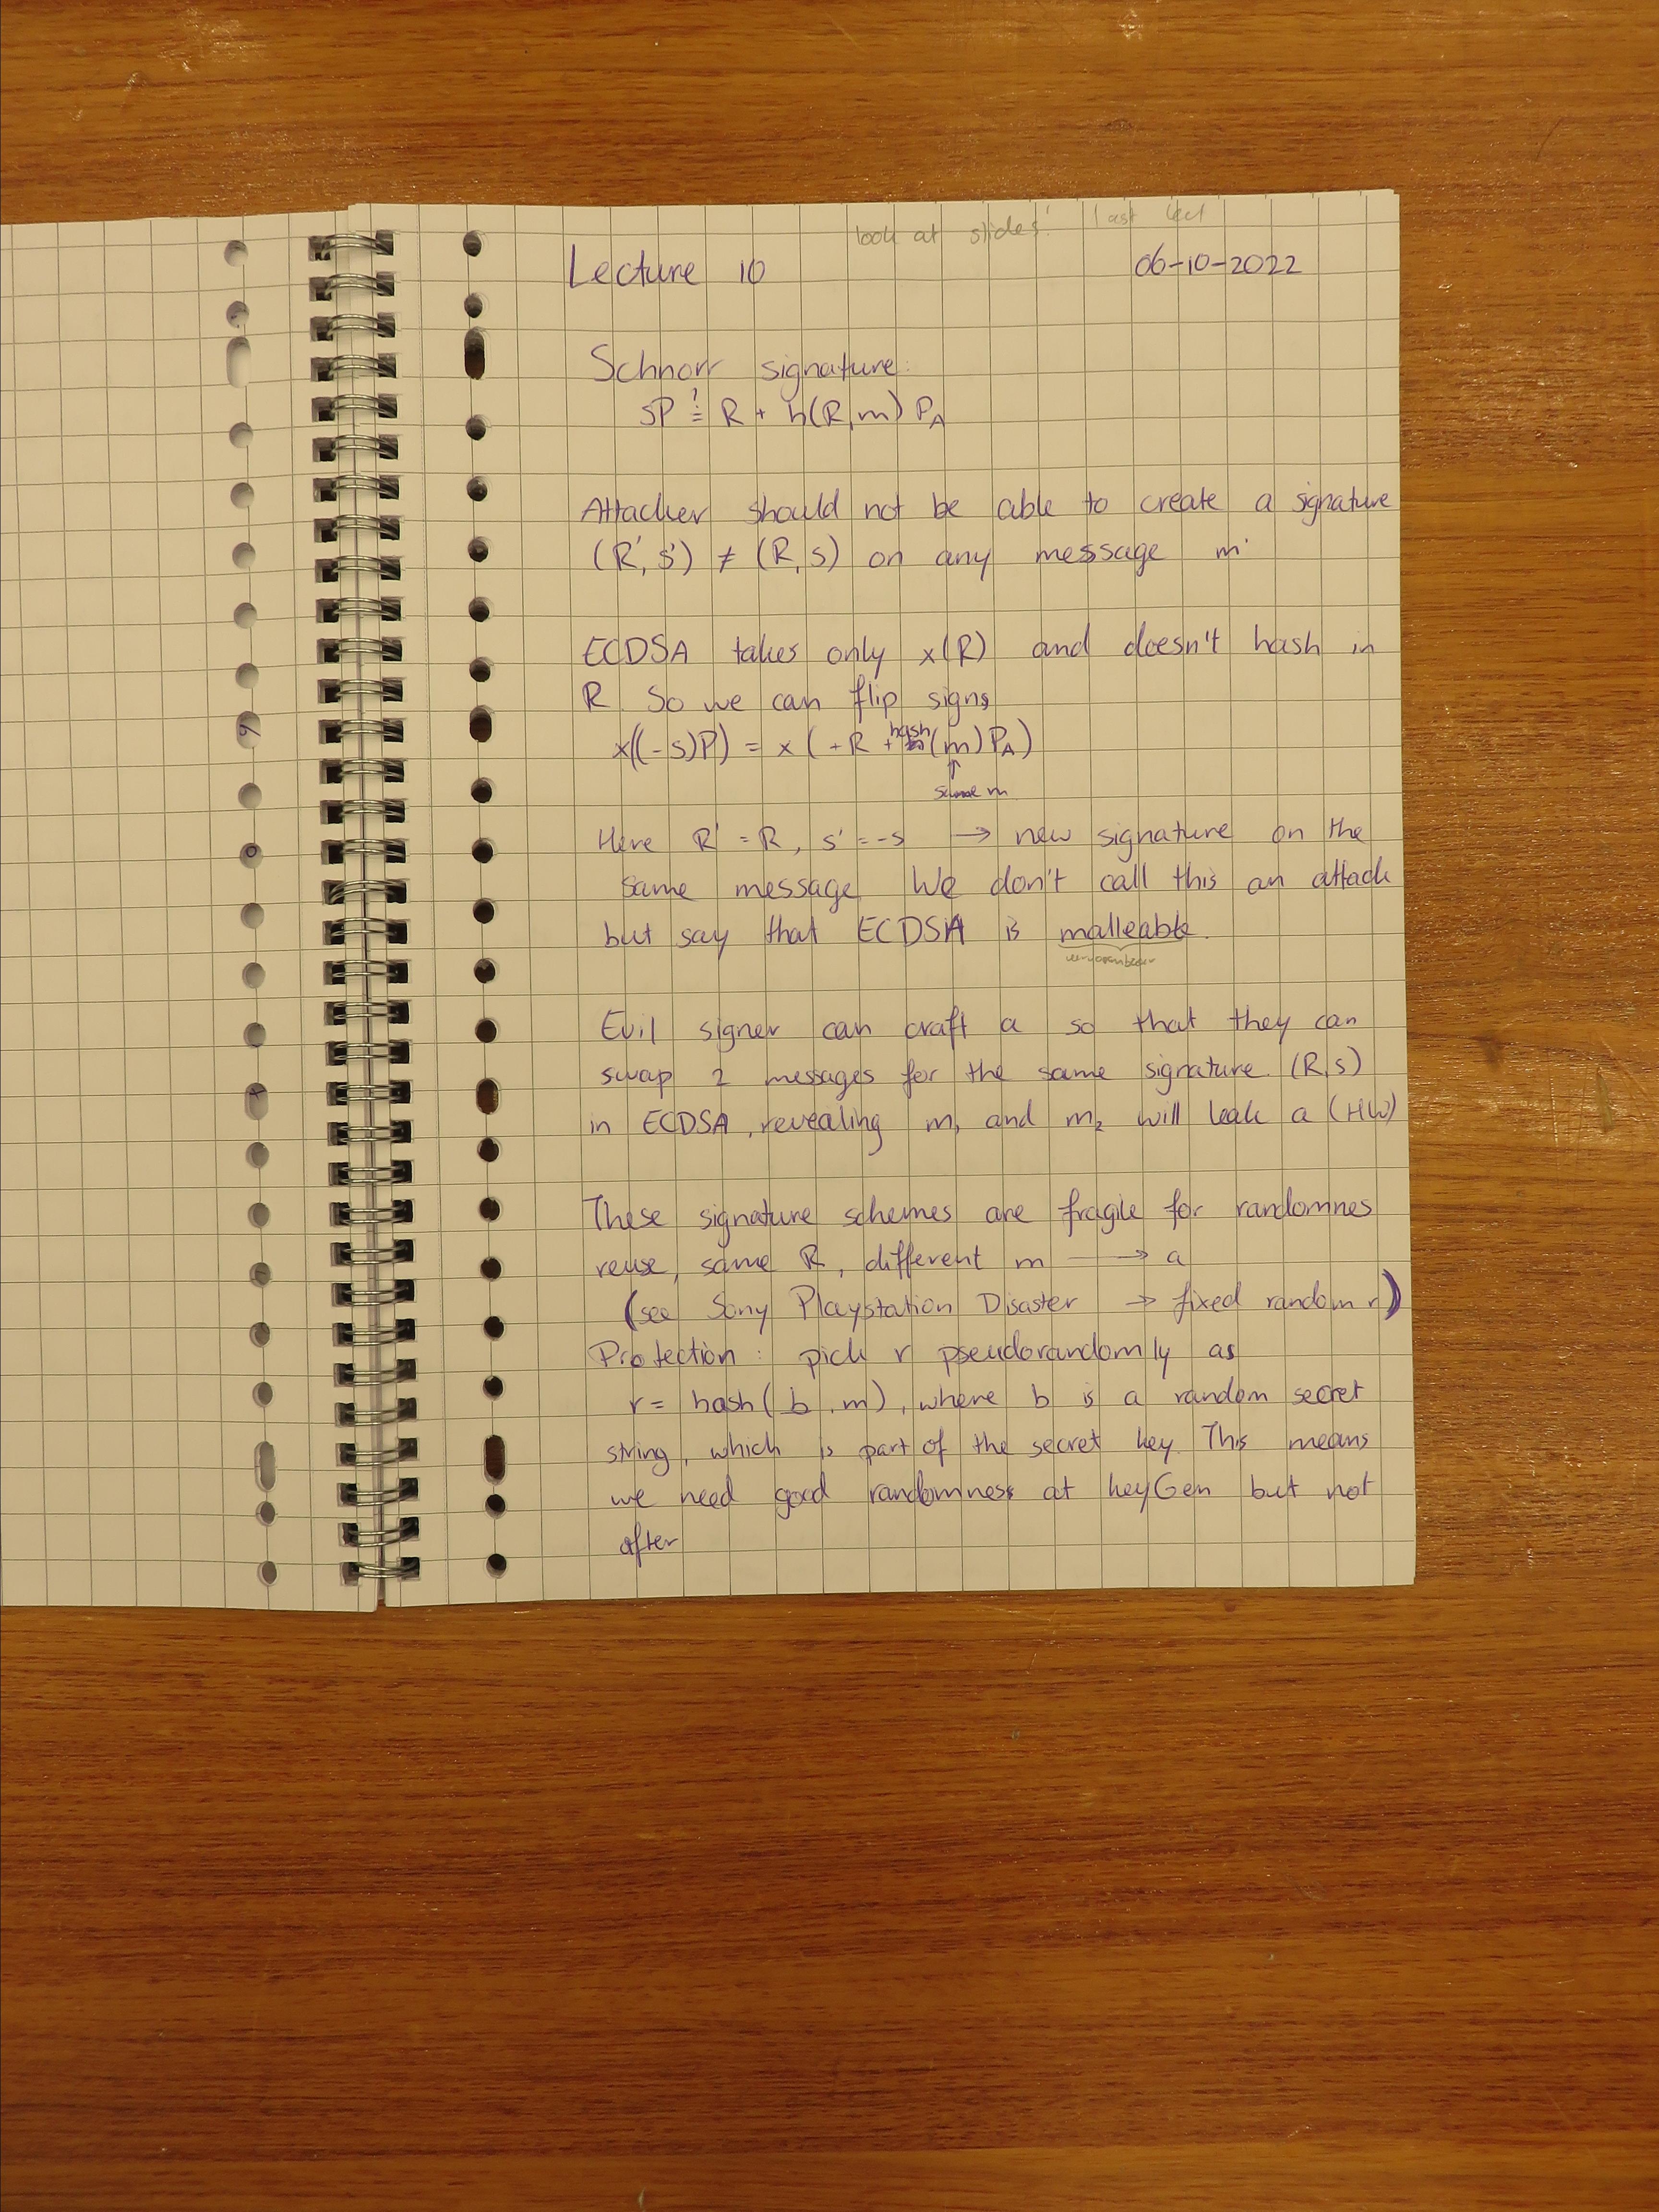 look at slides! last lect
Lecture 10 06-10-2022
Schnorr signature:
sP ≟ R + h(R,m) P_A
Attacker should not be able to create a signature
(R', s') ≠ (R, s) on any message m'
ECDSA takes only x(R) and doesn't hash in
R. So we can flip signs
x((-s)P) = x( +R + hash(m) P_A)
↑
same m
Here R' = R, s' = -s → new signature on the
same message. We don't call this an attack
but say that ECDSA is malleable.
Evil signer can craft a so that they can
swap 2 messages for the same signature (R,s)
in ECDSA, revealing m₁ and m₂ will leak a (HW)
These signature schemes are fragile for randomnes
reuse, same R, different m → a
(see Sony Playstation Disaster → fixed random r)
Protection: pick r pseudorandomly as
r = hash(b, m), where b is a random secret
string, which is part of the secret key. This means
we need good randomness at keyGen but not
after